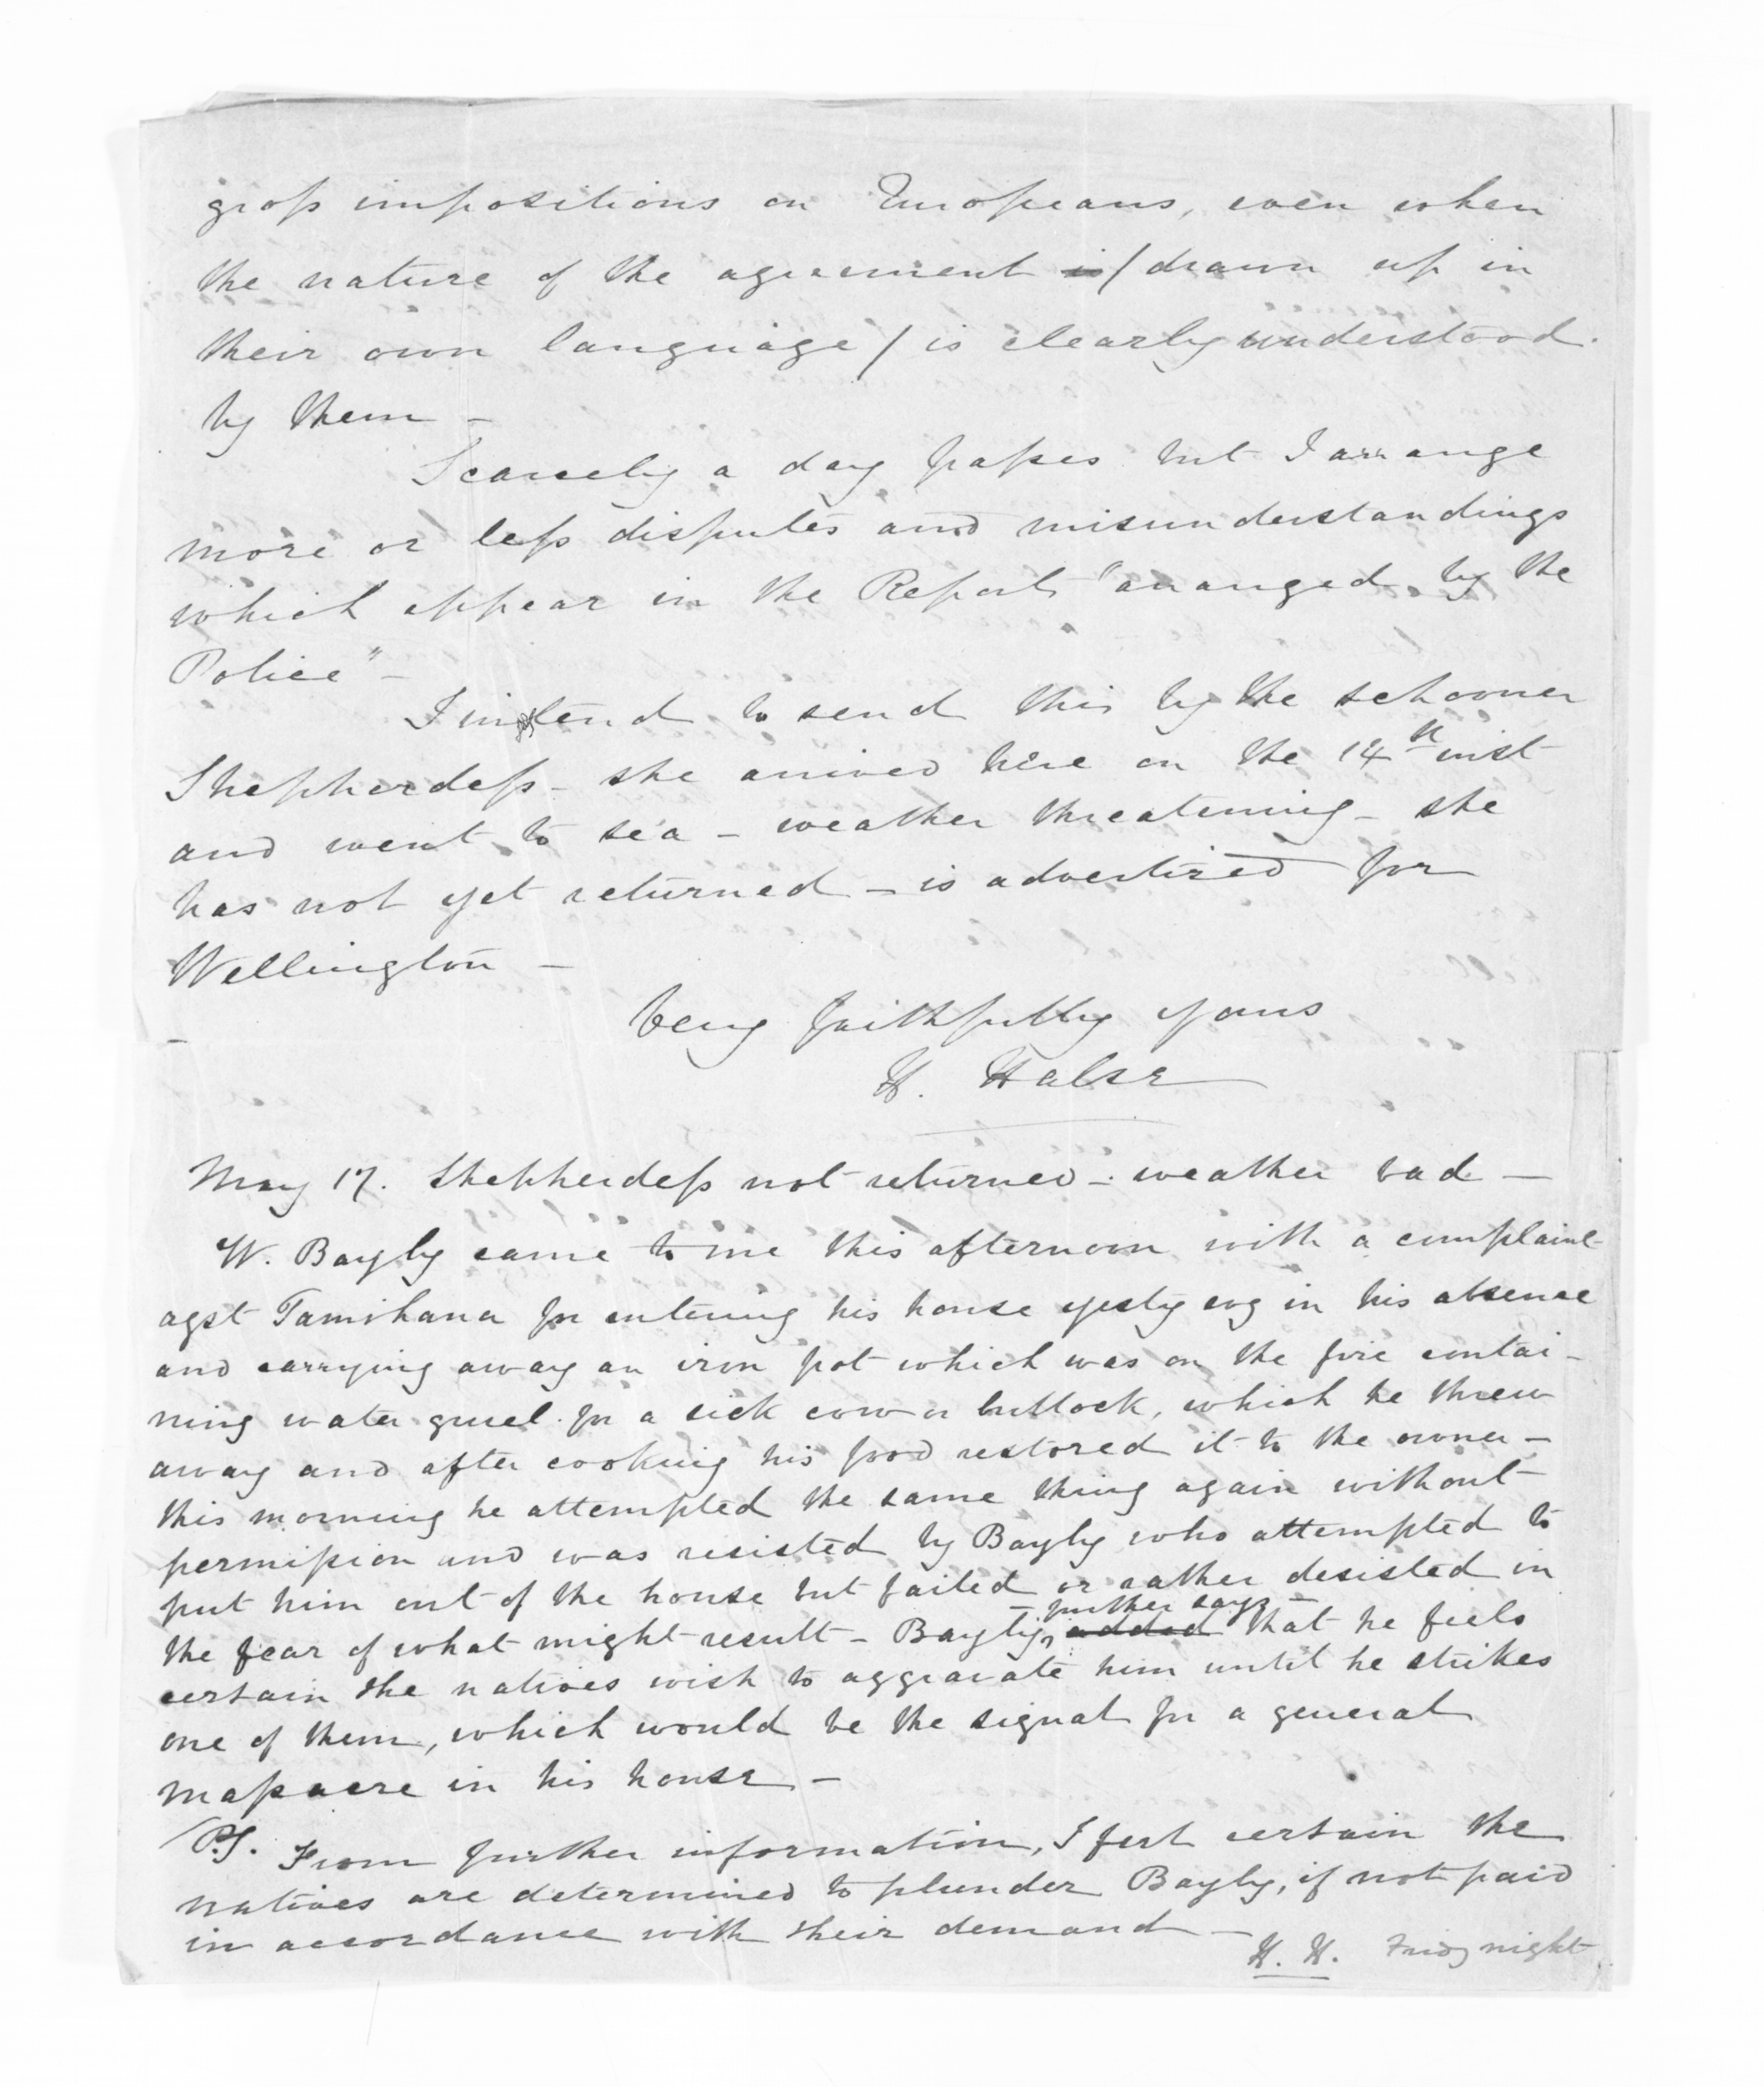 gross impositions on Europeans, even when
the nature of the agreement is / drawn up in
their own language / is clearly understood
by them -
Scarcely a day passes but I arrange
more or less disputes and misunderstandings
which appear in the Report "arranged by the
Police" -
I intend to send this by the schooner
Shepherdess - she arrived here on the 14th inst
and went to sea - weather threatening - she
has not yet returned - is advertized for
Wellington -
Very faithfully yours
H. Halse
May 17. Shepherdess not returned - weather bad -
W. Bayly came to me this afternoon with a complaint
agst Tamihana for entering his house yesty evg in his absence
and carrying away an iron pot which was on the fire contai-
ning water gruel for a sick cow or bullock, which he threw
away and after cooking his food restored it to the owner -
this morning he attempted the same thing again without
permission and was resisted by Bayly who attempted to
put him out of the house but failed or rather desisted in
the fear of what might result - Bayly, added further says that he feels
certain the natives wish to aggravate him until he strikes
one of them, which would be the signal for a general
massacre in his house -
P.S. From further information, I feel certain the
natives are determined to plunder Bayly, if not paid
in accordance with their demand -
H. H. Fridy night